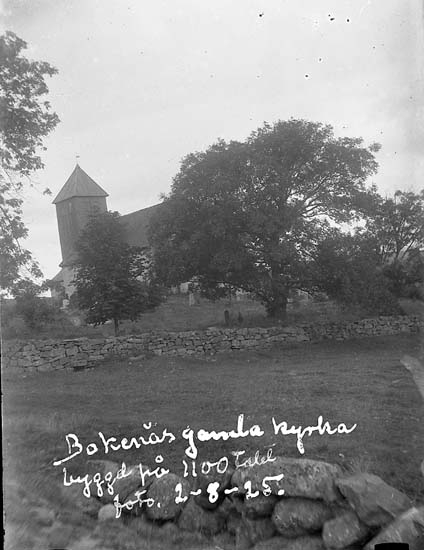 Bokenäs gamla kyrka
byggd på 1100 talet
foto. 2-8-25.